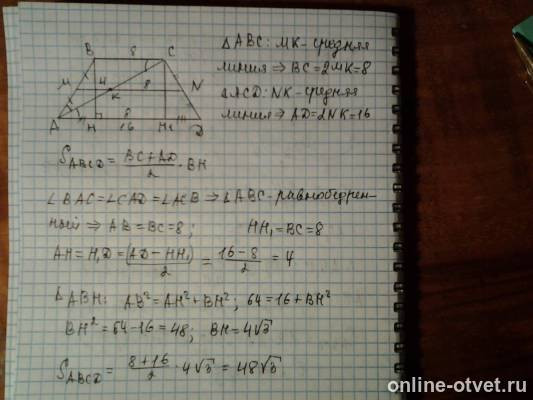 B 8 C
M 4 K 8 N
A H 8 H₁ D
16
△ABC: MK - средняя
линия ⇒ BC = 2MK = 8
△ACD: NK - средняя
линия ⇒ AD = 2NK = 16
S_ABCD = (BC + AD)/2 · BH
∠BAC = ∠CAD = ∠ACB ⇒ △ABC - равнобедрен-
ный ⇒ AB = BC = 8; HH₁ = BC = 8
AH = H₁D = (AD - HH₁)/2 = (16 - 8)/2 = 4
△ABH: AB² = AH² + BH²; 64 = 16 + BH²
BH² = 64 - 16 = 48; BH = 4√3
S_ABCD = (8 + 16)/2 · 4√3 = 48√3
online-otvet.ru